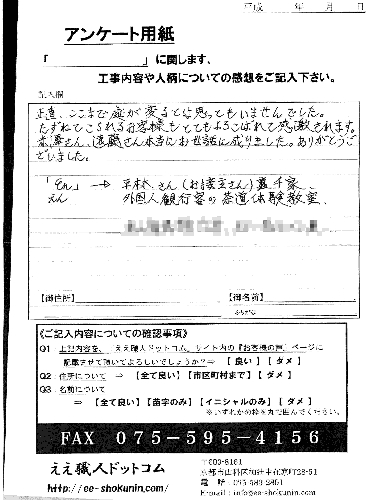 平成　　年　　月　　日
アンケート用紙
「　　　　　　　」に関します、
工事内容や人柄についての感想をご記入下さい。
記入欄
正直、ここまで庭が変るとは思ってもいませんでした。
たずねてこられるお客様もとてもよろこばれて感激されます。
さん、遠藤さん本当にお世話に成りました。ありがとうご
ざいました。
「えん」→ 平林さん(お施主さん)裏千家、
えん　外国人観光客の茶道体験教室、
【御住所】　【御名前】
ふりがな
《ご記入内容についての確認事項》
Q1 上記内容を、ええ職人ドットコム、サイト内の『お客様の声』ページに
記載させて頂いてよろしいでしょうか？⇒【 良い 】【 ダメ 】
Q2 住所について ⇒ 【 全て良い 】【市区町村まで】【 ダメ 】
Q3 名前について
⇒ 【 全て良い 】【 苗字のみ 】【イニシャルのみ 】【 ダメ 】
※いずれかの枠を丸で囲んでください。
FAX 075-595-4156
ええ職人ドットコム
http://ee-shokunin.com/
〒600-8161
E-mail：info@ee-shokunin.com